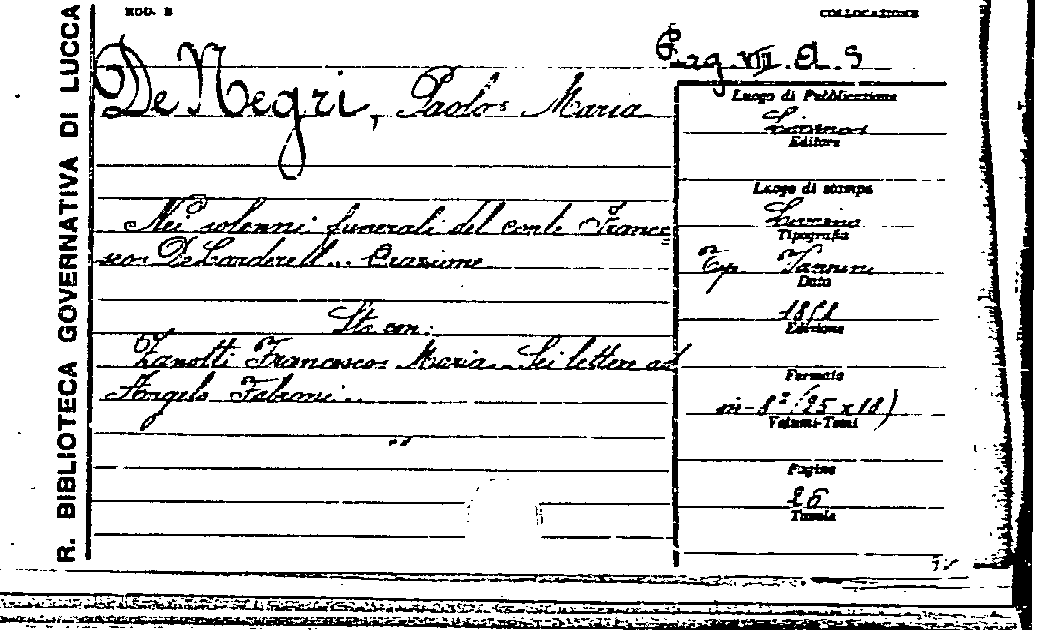 R. BIBLIOTECA GOVERNATIVA DI LUCCA
MOD. B
COLLOCAZIONE
Pag. VII. El. 9
De Negri, Paolo Maria
Nei solenni funerali del conte France
sco De Larderell... Orazione
Sta con:
Zanotti Francesco Maria. Sei lettere ad
Angelo Fabroni..
Luogo di Pubblicazione
Livorno
Editore
Luogo di stampa
Livorno
Tipografia
Tip. Vannini
Data
1858
Edizione
Formato
in-8° (25 x 18)
Volumi-Tomi
Pagine
26
Tavole